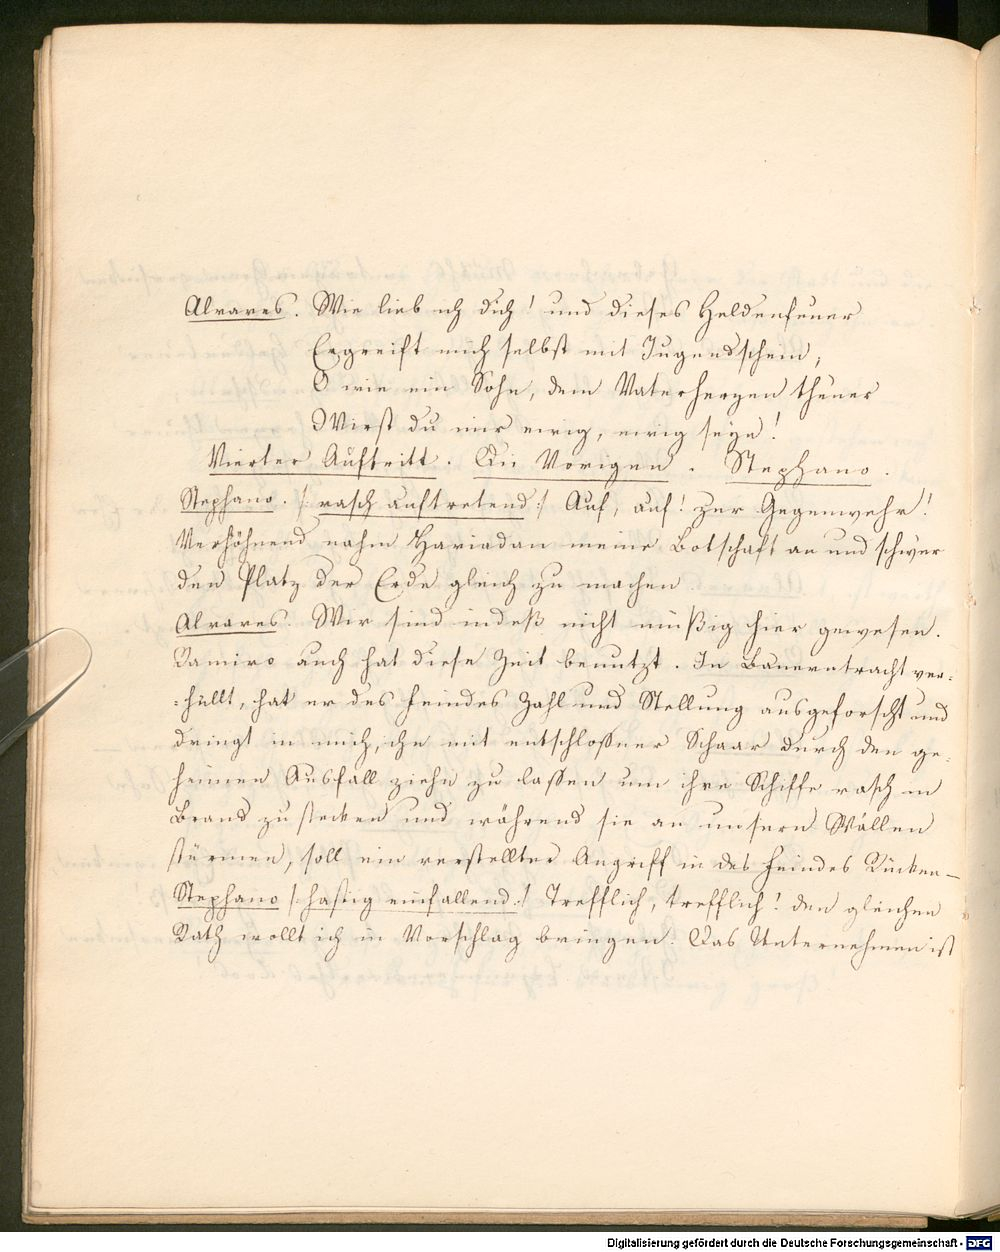 Alvares. Wie lieb ich dich! und dieses Heldenfeuer
Ergreift mich selbst mit Jugendschein,
O wie ein Sohn, dem Vaterherzen theuer
Wirst du mir ewig, ewig seyn!
Vierter Auftritt. Die Vorigen. Stephano.
Stephano. /: rasch auftretend :/ Auf, auf! zur Gegenwehr!
Verhöhnend nahm Hariadan meine Botschaft an und schwur
den Platz der Erde gleich zu machen
Alvares. Wir sind indeß nicht müßig hier gewesen.
Ramiro auch hat diese Zeit benutzt. In Bauerntracht ver=
=hüllt, hat er des Feindes Zahl und Stellung ausgeforscht und
dringt in mich, ihn mit entschloßner Schaar durch den ge=
heimen Ausfall ziehn zu lassen um ihre Schiffe rasch in
Brand zu stecken und während sie an unsern Wällen
stürmen, soll ein verstellter Angriff in des Feindes Rücken—
Stephano /: hastig einfallend :/ Trefflich, trefflich! den gleichen
Rath wollt ich in Vorschlag bringen. Das Unternehmen ist
Digitalisierung gefördert durch die Deutsche Forschungsgemeinschaft - DFG